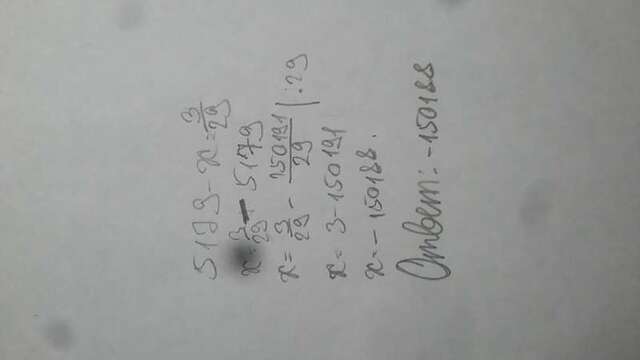 5179-x=3/29
x=3/29-5179
x=3/29-150191/29 |:29
x=3-150191
x=-150188.
Ответ:-150188